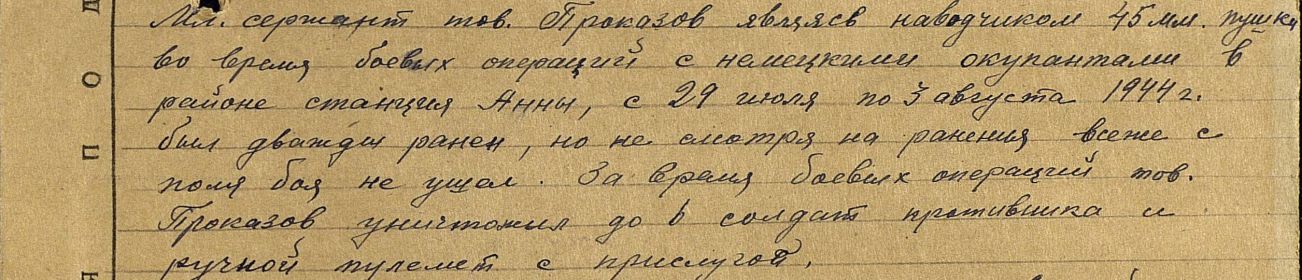 Мл. сержант тов. Проказов являясь наводчиком 45 мм. пушки
во время боевых операций с немецкими окупантами в
районе станция Анны, с 29 июля по 3 августа 1944 г.
был дважды ранен, но не смотря на ранения всеже с
поля боя не ушел. За время боевых операций тов.
Проказов уничтожил до 6 солдат противника и
ручной пулемет с прислугой.